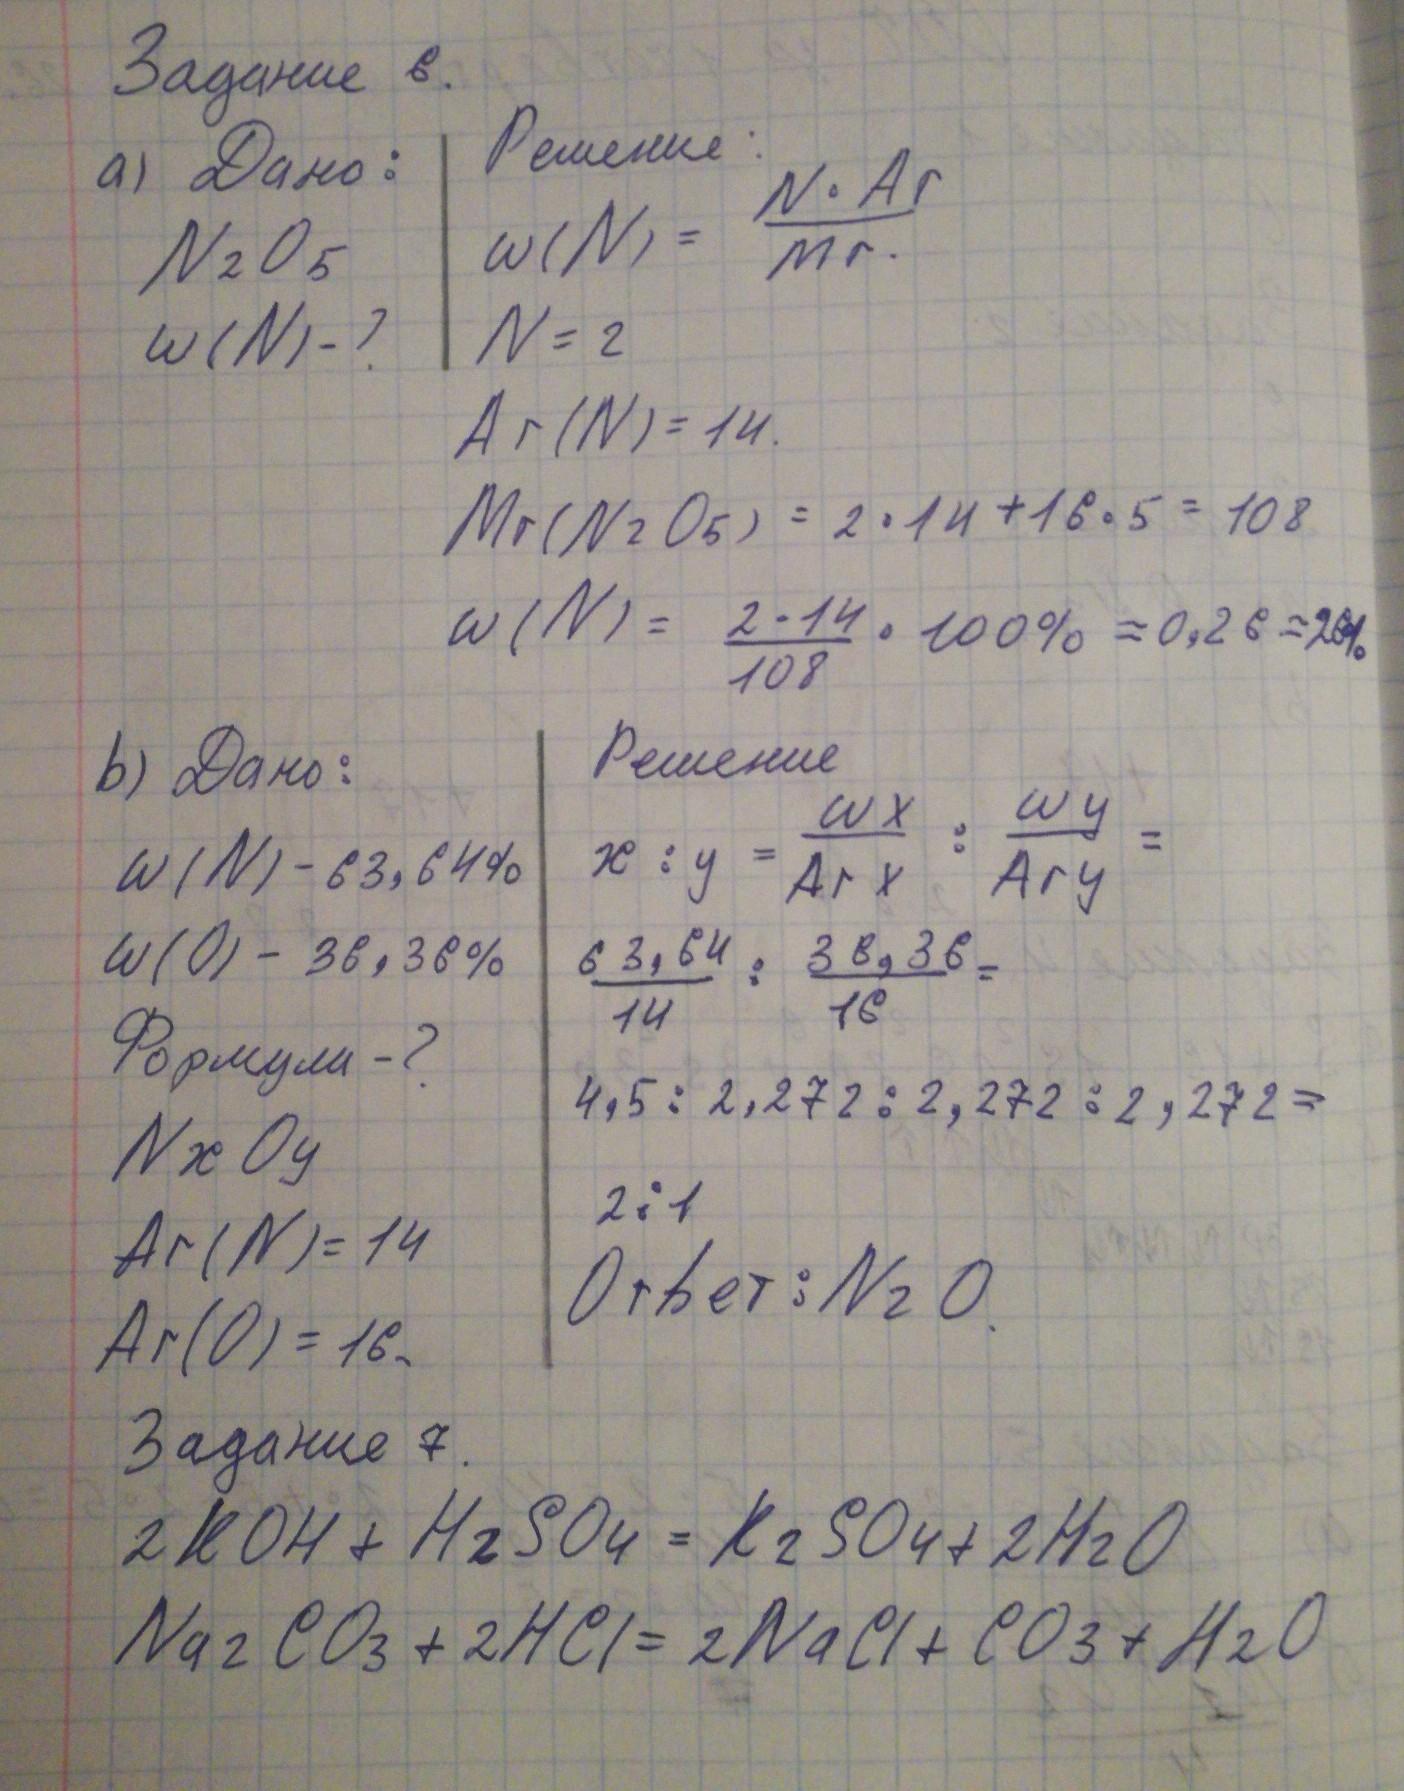 Задание 6.
а) Дано:
N2O5
w(N)-?
Решение:
w(N) = N·Ar / Mr.
N=2
Ar(N)=14.
Mr(N2O5) = 2·14+16·5 = 108
w(N) = 2·14 / 108 · 100% = 0,26 = 26%
b) Дано:
w(N) - 63,64%
w(O) - 36,36%
Формули -?
NxOy
Ar(N)=14
Ar(O)=16.
Решение
x:y = wx / Arx : wy / Ary =
63,64 / 14 : 36,36 / 16 =
4,5:2,272:2,272:2,272=
2:1
Ответ: N2O.
Задание 7.
2KOH + H2SO4 = K2SO4 + 2H2O
Na2CO3 + 2HCl = 2NaCl + CO3 + H2O